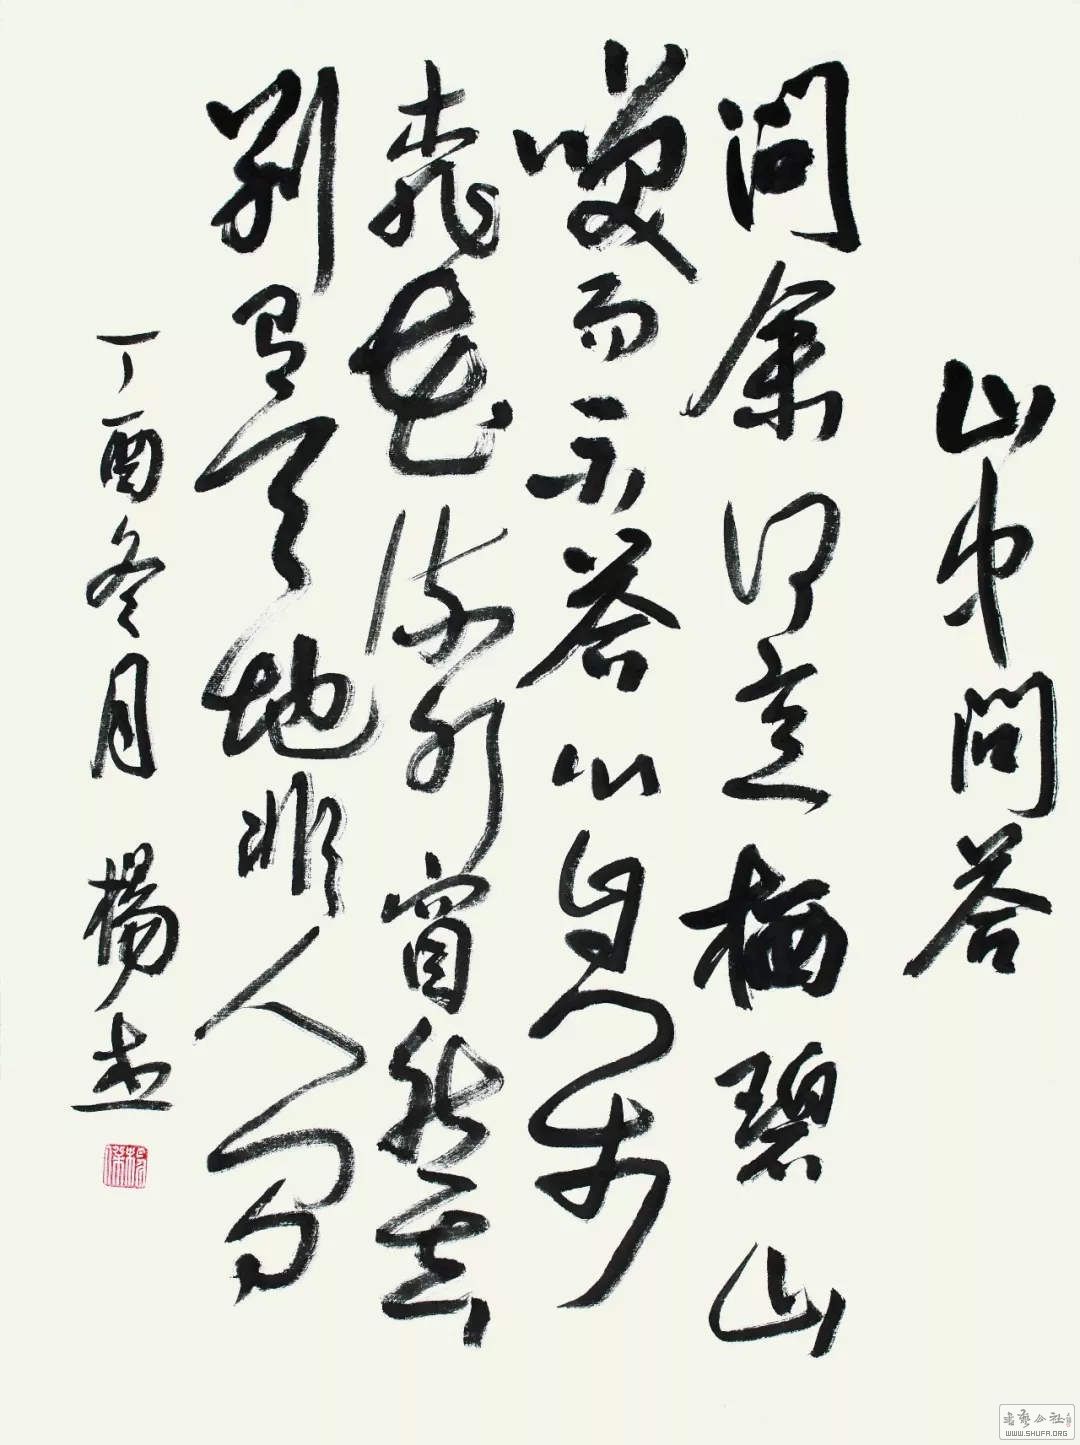 山中问答
问余何意栖碧山
笑而不答心自闲
桃花流水窅然去
别有天地非人间
丁酉冬月 楊杰
书艺公社
WWW.SHUFA.ORG